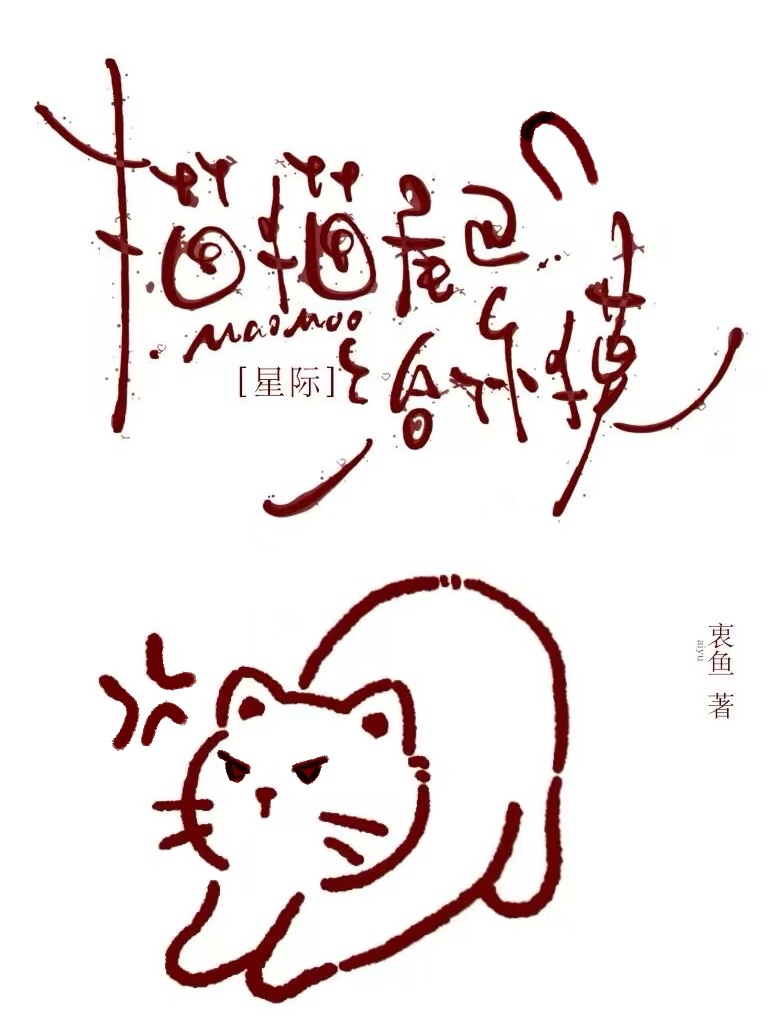 猫猫尾巴
maomao
给你摸
[星际]
衷鱼 著
aiyu